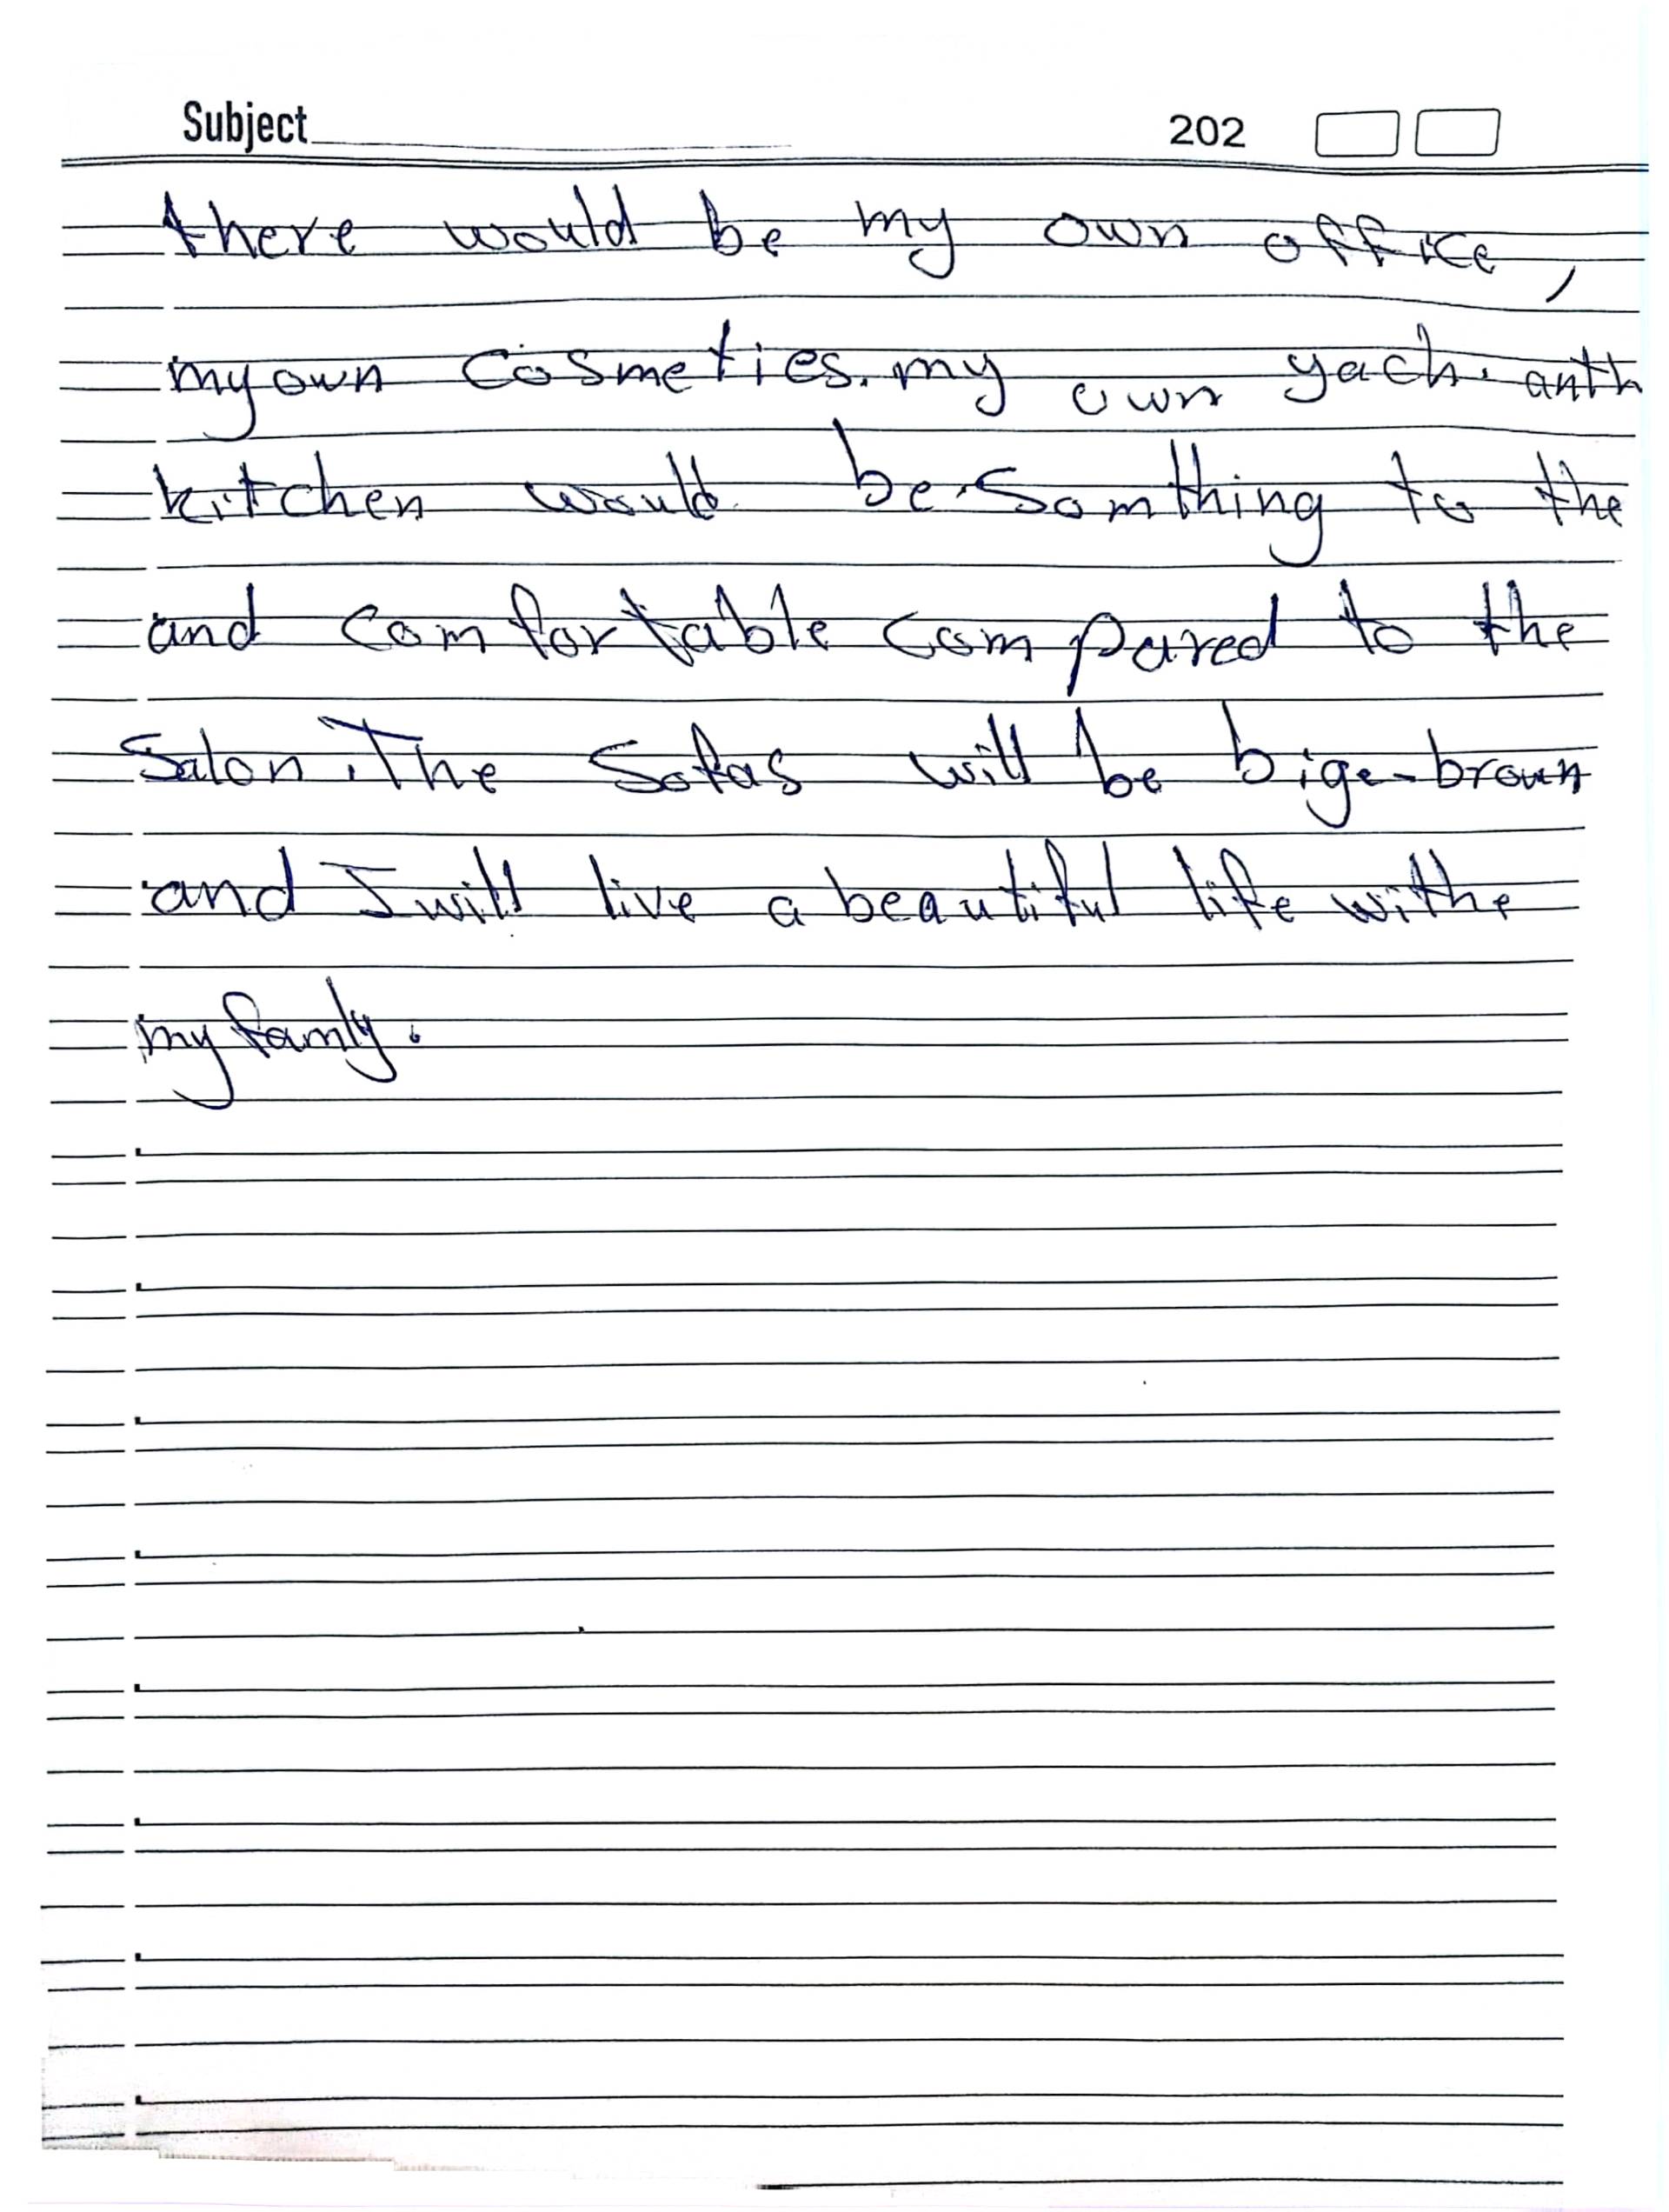 Subject 202
there would be my own office,
my own cosmetics. my own yach. anth
kitchen would be somthing to the
and comfortable compared to the
Salon. The Sofas will be bige-broun
and I will live a beautiful life withe
my famly.